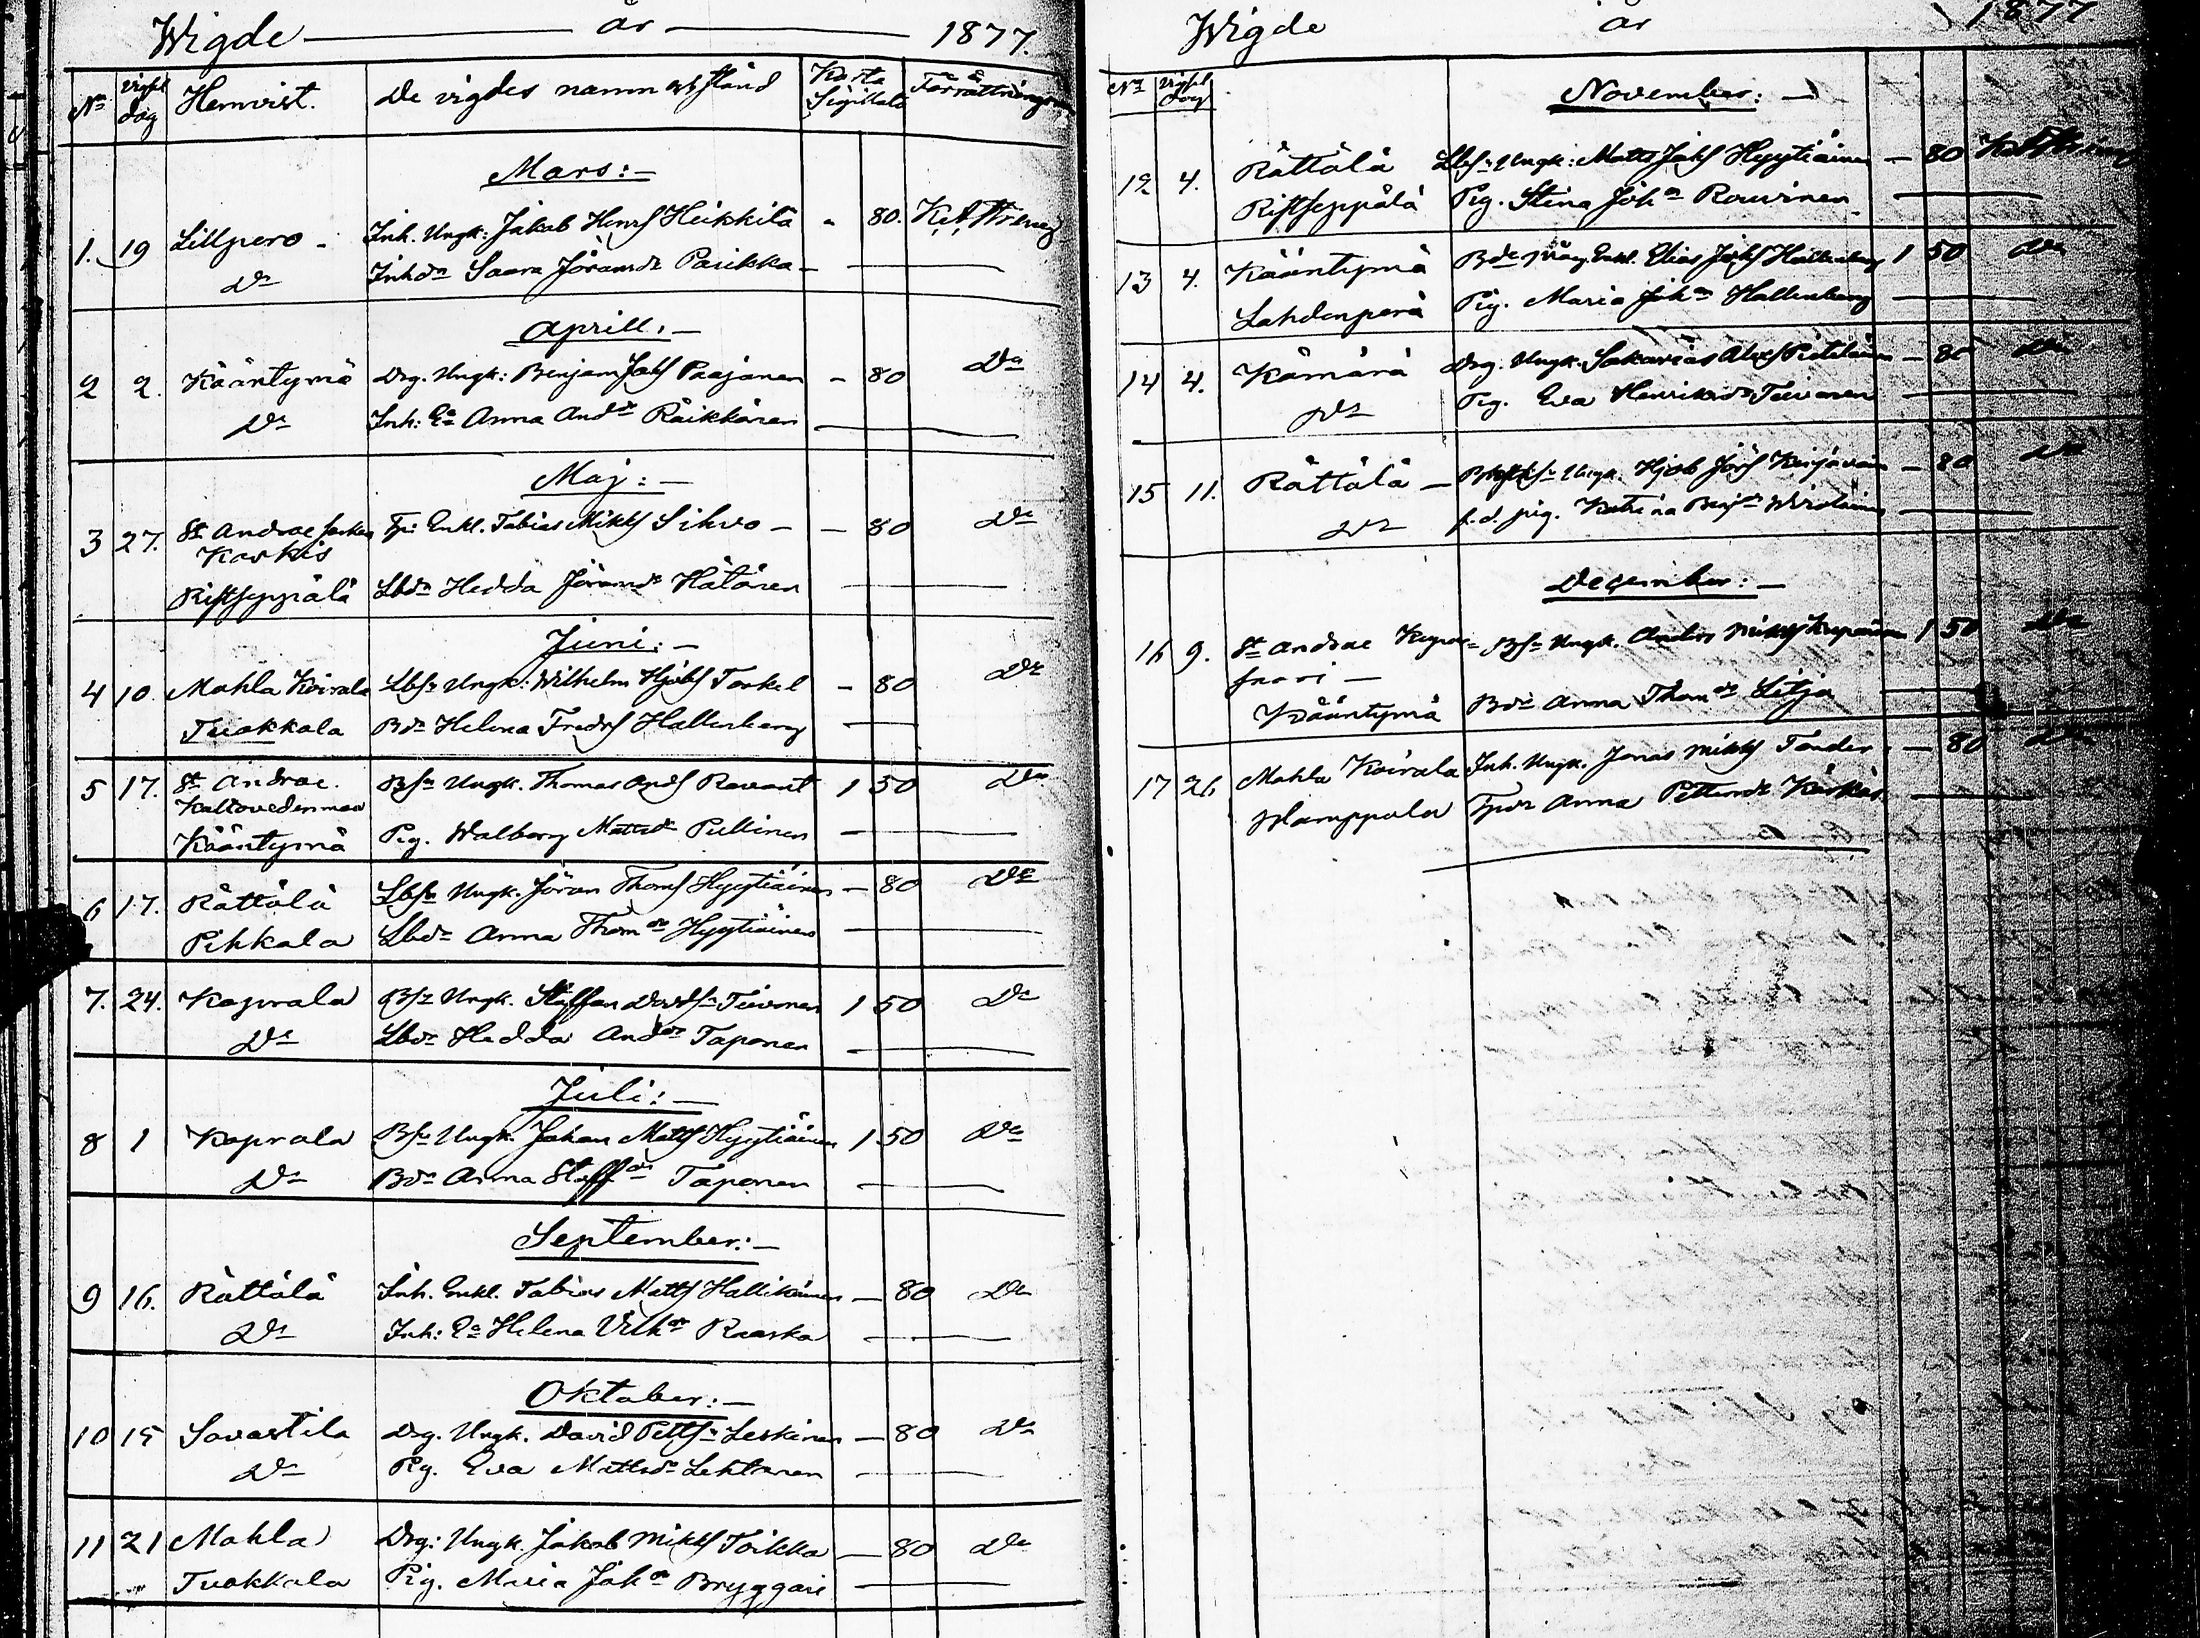 Wigde år 1877.
No vigsel dag Hemvist. De vigdes namn och stånd Karta Sigillata Förrättningsman
Mars:
1. 19 Lillpero Inh. Ungk: Jakob Henrs Heikkilä - 80.
Do Inhdr Saara Jöransdr Parikka
Aprill:
2 2. Kääntymä Drg. Ungk: Benjam Jaks Paajanen - 80 Do
Do Inh: Ea Anna Anddr Räikkönen
Maj:
3 27. St Andrae socken Enkl. Tobias Mikls Sihvo - 80 Do
Karkis
Ristseppälä Lbdr Hedda Jöransdr Hätönen
Juni:
4 10. Mahla Koirala Lbsn Ungk: Wilhelm Hjobs Torkel - 80 Do
Tuokkola Bdr Helena Freds Hallenberg
5 17. St Andrae. Bsn Ungk. Thomas Ands Ravant 1 50 Do
Kaltovedenmaa
Kääntymä Pig. Walborg Mattsdr Pullinen
6 17. Rättälä Lbsn Ungk. Jöran Thoms Hyytiäinen - 80 Do
Pihkala Lbdr Anna Thomdr Hyytiäinen
7. 24. Kaprala Bsn Ungk. Staffan Davdsn Teivonen 1 50 Do
Do Lbdr Hedda Anddr Taponen
Juli:
8 1 Kaprala Bsn Ungk. Johan Matts Hyytiäinen 1 50 Do
Do Bdr Anna Staffdr Taponen
September:
9 16. Rättälä Inh. Enkl. Tobias Matts Hallikainen - 80 Do
Do Inh: Ea Helena Vilhdr Raaska
Oktober:
10 15 Savastila Drg. Ungk. David Pettsn Leskinen - 80 Do
Do Pig. Eva Mattsdr Lehtonen
11 21 Mahla Drg: Ungk. Jakob Mikls Toikka - 80 Do
Tuokkola Pig. Maria Johdr Bryggari
Wigde år 1877
No vigsel dag November:
12 4. Rättälä Lbsn Ungk: Matts Jaks Hyytiäinen - 80
Ristseppälä Pig. Stina Johdr Rouvinen
13 4. Kääntymä Enkl. Elias Joh Hallenberg 1 50 Do
Lahdenperä Pig. Maria Johdr Hallenberg
14 4. Kämärä Drg. Ungk. Sakarias Alexs Pietiläinen - 80 Do
Do Pig. Eva Henriksdr Teivonen
15 11. Rättälä Ungk. Hjob Jörs - 80 Do
Do f.d. pig. Katrina Benjdr
December:
16 9. St Andrae Kupar- Bsn Ungk. Anders Mikls Kuparinen 1 50 Do
saari
Kääntymä Bdr Anna Thomdr Litja
17 26 Mahla Koirala Inh. Ungk. Jonas Mikls Tonder - 80 Do
Hamppola Anna Pettersdr